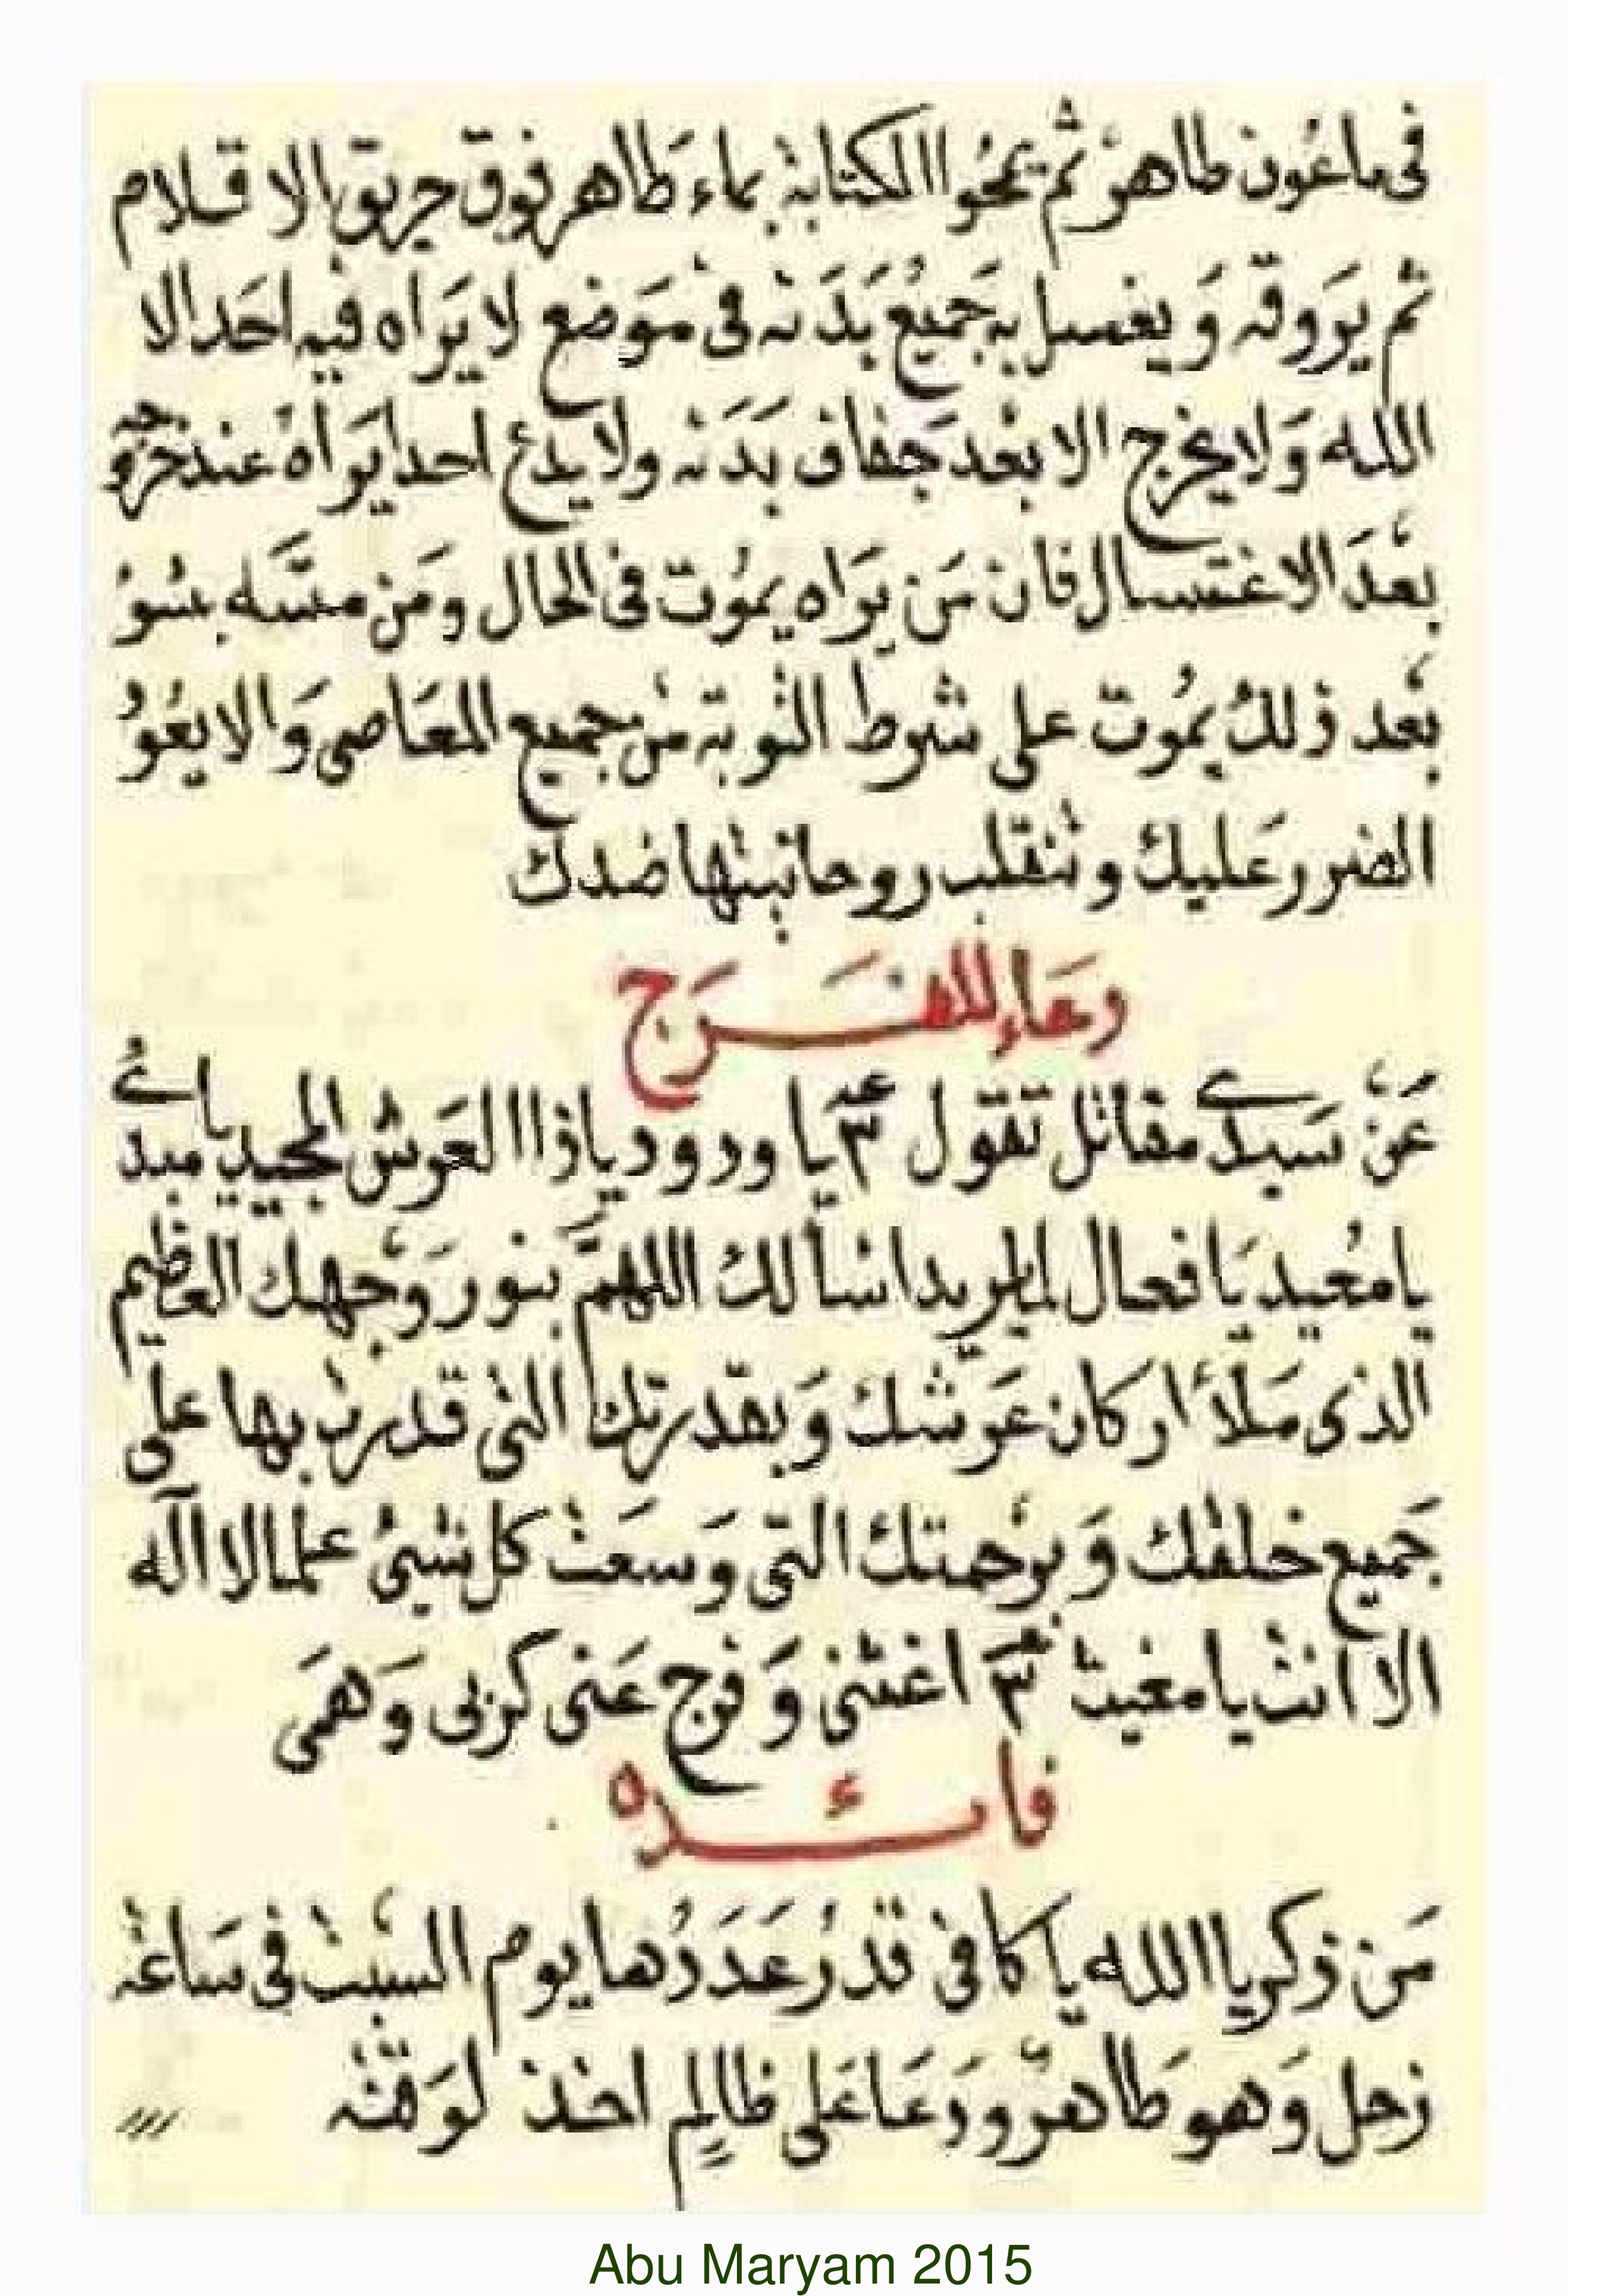 فى ماعُون طاهرْ ثم يمحُوا الكتابة بماء طَاهر فوق حريق الاقلام
ثم يَروقه وَ يغسل به جَميعُ بَدَنه فى مَوَضع لا يَرَاه فيه احَد الا
الله وَلا يخرج الا بعْد جَفاف بَدَنه ولا يدع احد يَرَاهُ عند خروجه
بعْدَ الاغتسال فان مَن يَرَاه يمُوت فى الحال ومَن مسَّه بسُوُ
بعْد ذلكُ يمُوت على شرط التوبة منْ جميع المعَاصى وَالا يعُوُ
الضرر عَليك وتنقلب روحانيتها ضدك
دعَاء للفَرَج
عَنْ سَيدى مقاتل تقول ٣ يا ودود ياذا العَرش المجيد يا مبدئُ
يا مُعيد يَا فعال لما يريد اسألك اللهمَّ بنور وَجْهك العظيم
الذى مَلأ اركان عَرشك وَبقدرتك التى قدرت بها على
جَميع خلقك وَبرحْمتك التى وَسعَتْ كل شيئ علما لا اله
الا انت يا مغيث ٣ اغثنى وَ فرج عَنى كربى وَهَمى
فائده
مَن ذكر يا الله يا كافى قدْر عَدَدُها يوم السْبت فى سَاعة
زحل وَهو طَاهرْ ودَعَا عَلى ظالِمٍ اخذ لوَقته
Abu Maryam 2015